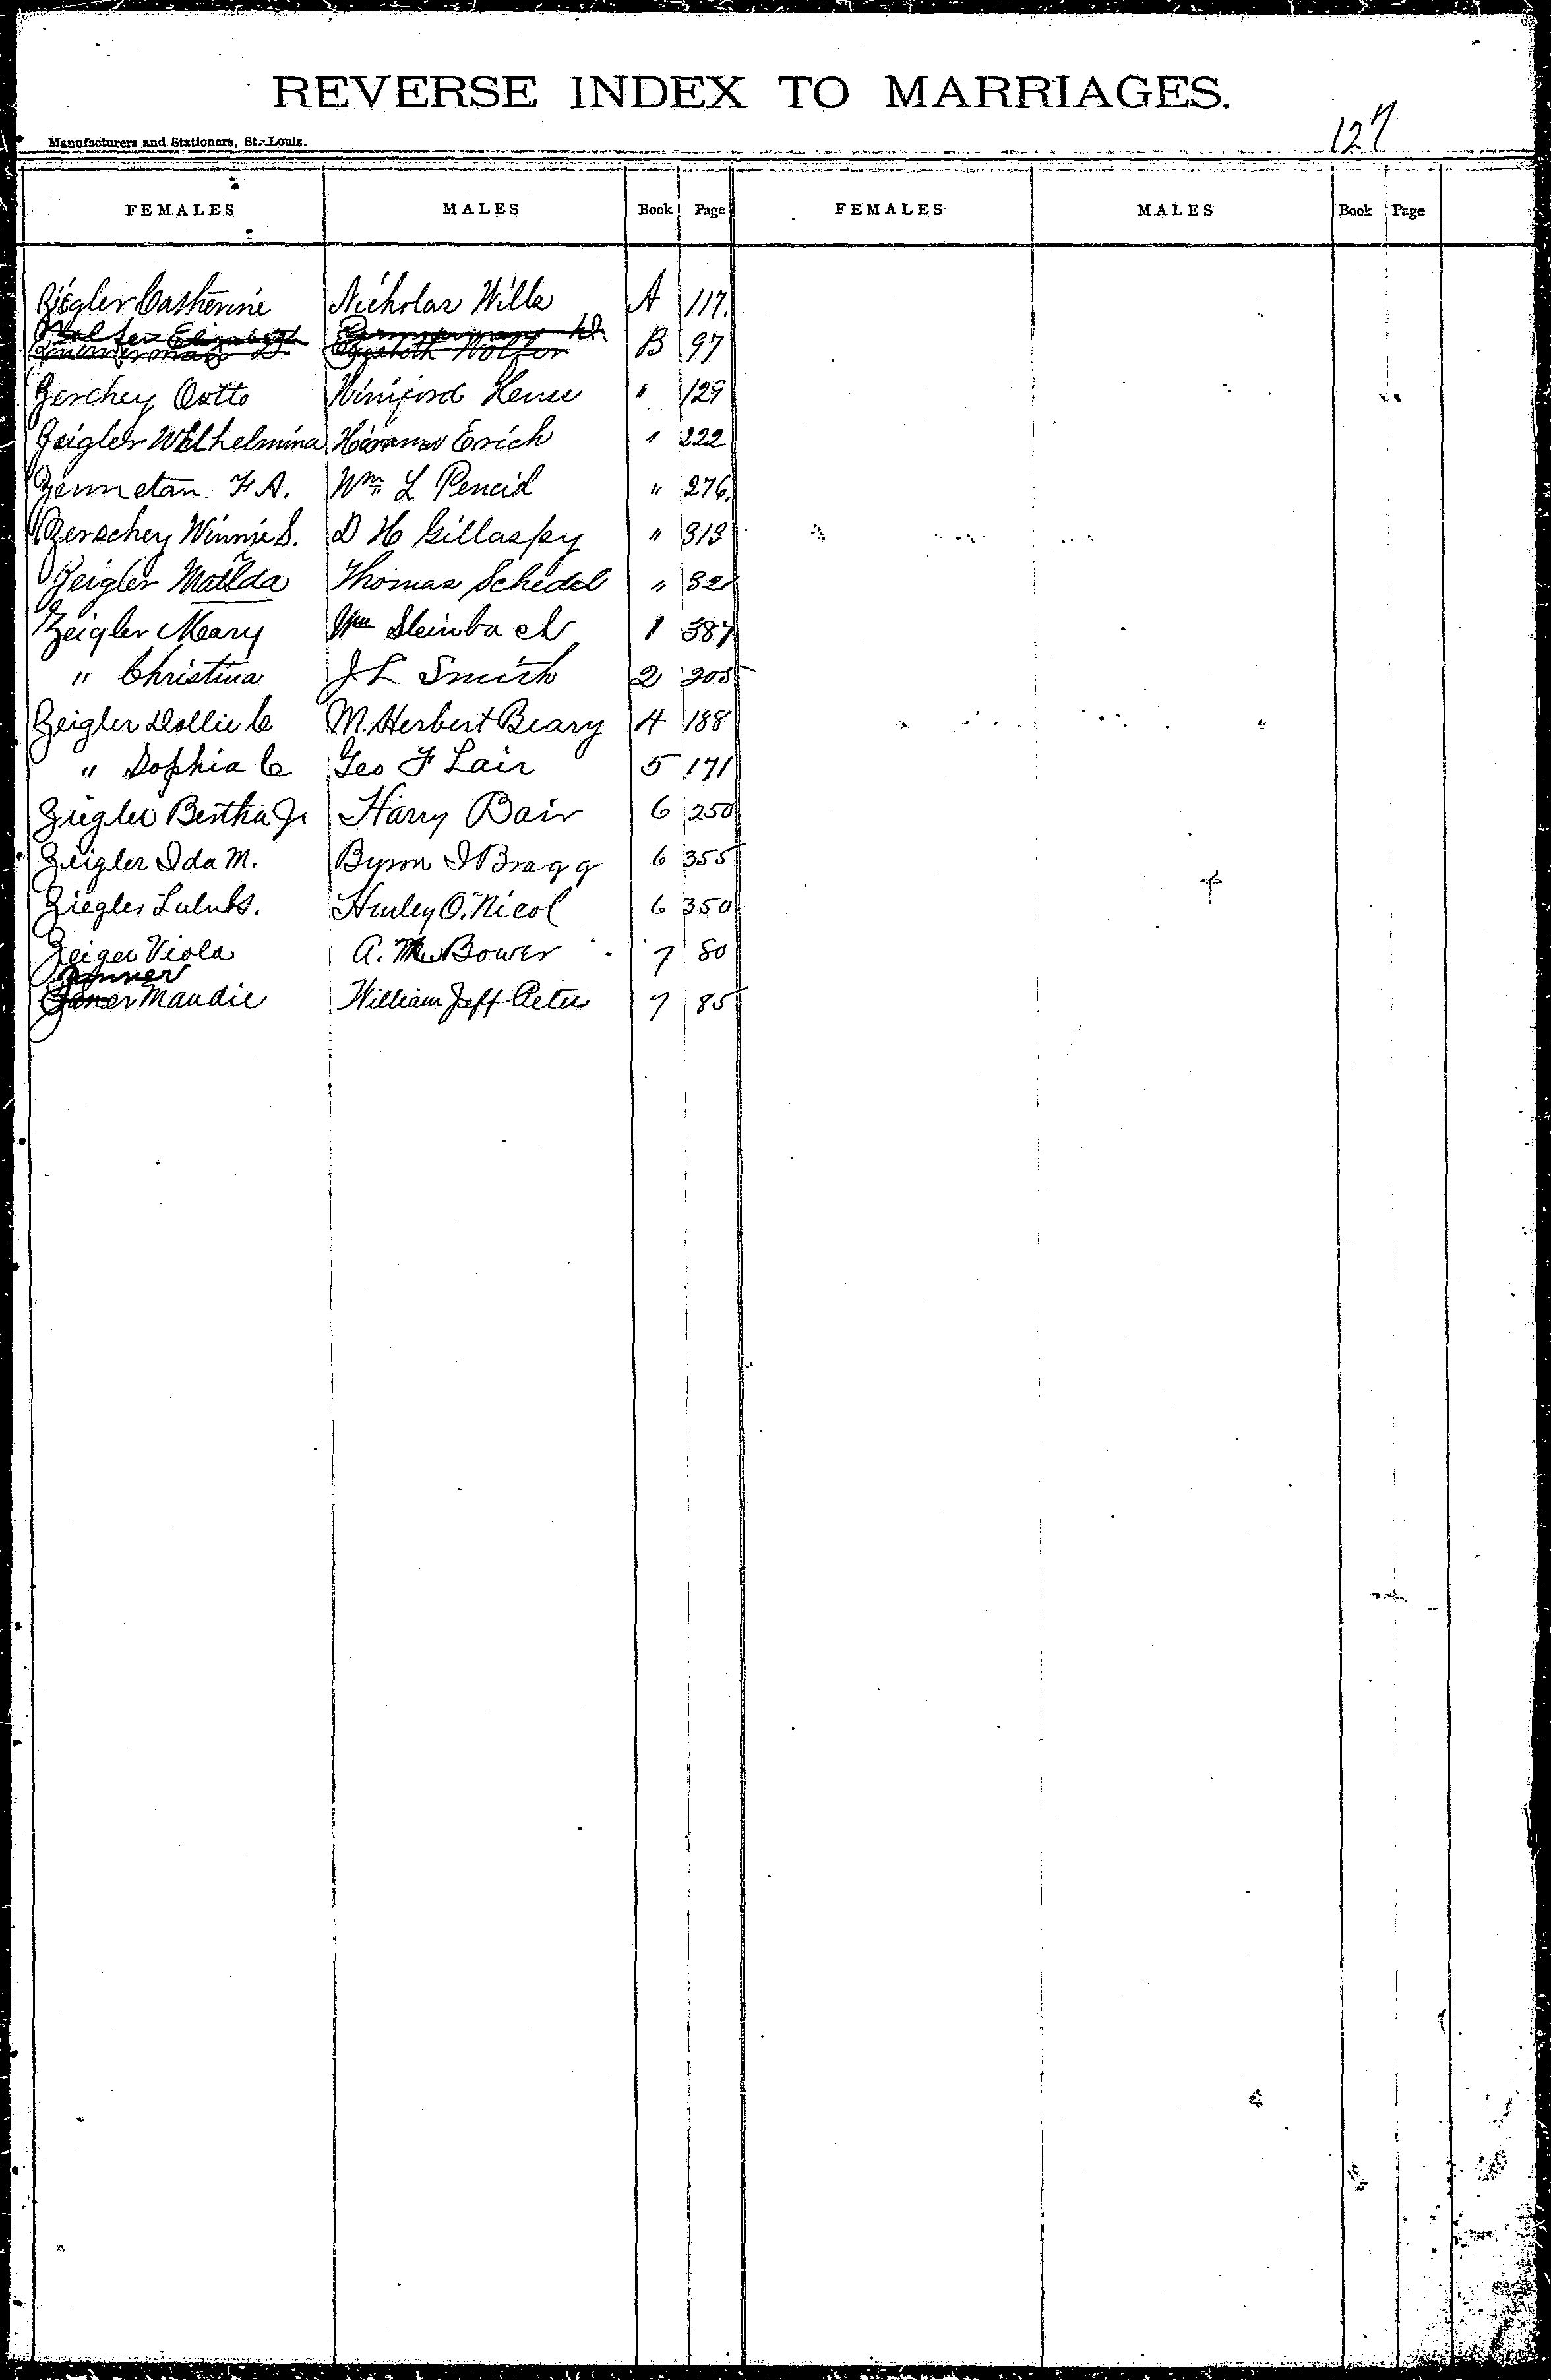 REVERSE INDEX TO MARRIAGES.
127
Manufacturers and Stationers, St. Louis.
FEMALES MALES Book Page FEMALES MALES Book Page
Ziegler Catherine Nicholas Wills A 117.
Wolfer Elizabeth Zimmerman
Zimmerman D Elizabeth Wolfer B 97
Zerchey Otto Winiford " 129
Zeigler Wilhelmina Erich " 222
F. A. Wm L Pencid " 276.
Zerschey Winnie S. D H Gillaspy " 313
Zeigler Matilda Thomas Schedel " 321
Zeigler Mary Wm Steinbach 1 387
" Christina J L Smith 2 205
Zeigler Dollie C M. Herbert Beary 4 188
" Sophia C Geo F Lair 5 171
Ziegler Bertha Harry Bair 6 250
Zeigler Ida M. Byron I Bragg 6 355
Ziegler Hurley O. Nicol 6 350
Zeiger Viola A. Bower 7 80
Zenner
Maudie William Jeff Peter 7 85